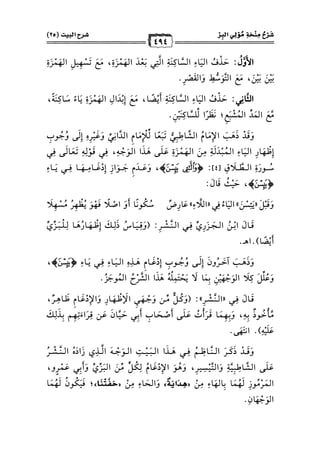 شَرْحُ مِنْحَةِ مُؤْلِي البِرِّ
٤٩٤
شرح البيت (٢٥)
الأَوَّلُ: حَذْفُ اليَاءِ السَّاكِنَةِ الَّتِي بَعْدَ الهَمْزَةِ، مَعَ تَسْهِيْلِ الهَمْزَةِ
بَيْنَ بَيْنَ، مَعَ التَّوَسُّطِ وَالقَصْرِ.
الثَّانِي: حَذْفُ اليَاءِ السَّاكِنَةِ أَيْضًا، مَعَ إِبْدَالِ الهَمْزَةِ يَاءً سَاكِنَةً،
مَعَ المَدِّ المُشْبَعِ؛ نَظَرًا لِلسَّاكِنَيْنِ.
وَقَدْ ذَهَبَ الإِمَامُ الشَّاطِبِيُّ تَبَعًا لِلْإِمَامِ الدَّانِيِّ وَغَيْرِهِ إِلَى وُجُوبِ
إِظْهَارِ اليَاءِ المُبْدَلَةِ مِنَ الهَمْزَةِ عَلَى هَذَا الوَجْهِ، فِي قَوْلِهِ تَعَالَى فِي
سُورَةِ الطَّلَاقِ [٤]: ﴿وَٱلَّٰٓـِٔي يَئِسْنَ﴾، وَعَدَمِ جَوَازِ إِدْغَامِهَا فِي يَاءِ
﴿يَئِسْنَ﴾، حَيْثُ قَالَ:
وَقَبْلَ «يَئِسْنَ» اليَاءُ فِي «اللَّاءِ» عَارِضٌ سُكُونًا أَوْ اصْلًا فَهُوَ يُظْهِرُ مُسْهِلَا
قَالَ ابْنُ الجَزَرِيِّ فِي النَّشْرِ: (وَقِيَاسُ ذَلِكَ إِظْهَارُهَا لِلْبَزِّيِّ
أَيْضًا). اهـ.
وَذَهَبَ آخَرُونَ إِلَى وُجُوبِ إِدْغَامِ هَذِهِ اليَاءِ فِي يَاءِ ﴿يَئِسْنَ﴾،
وَعُلِّلَ كِلَا الوَجْهَيْنِ بِمَا لَا يَحْتَمِلُهُ هَذَا الشَّرْحُ المُوجَزُ.
قَالَ فِي «النَّشْرِ»: (وَكُلٌّ مِّنْ وَجْهَيِ الإِظْهَارِ وَالإِدْغَامِ ظَاهِرٌ،
مَأْخُوذٌ بِهِ، وَبِهِمَا قَرَأْتُ عَلَى أَصْحَابِ أَبِي حَيَّانَ عَن قِرَاءَتِهِم بِذَلِكَ
عَلَيْهِ). انتهى.
وَقَدْ ذَكَرَ النَّاظِمُ فِي هَذَا البَيْتِ الوَجْهَ الَّذِي زَادَهُ النَّشْرُ
عَلَى الشَّاطِبِيَّةِ وَالتَّيْسِيرِ، وَهُوَ الإِدْغَامُ لِكُلٍّ مِّنَ البَزِّيِّ وَأَبِي عَمْرٍو،
المَرْمُوزِ لَهُمَا بِالهَاءِ مِنْ «هِدَايَةٌ»، وَالحَاءِ مِنْ «حَقَّتَا»؛ فَيَكُونُ لَهُمَا
الوَجْهَانِ.